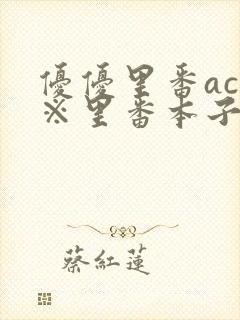 優優里番ac
※里番本子
蔡紅蓮